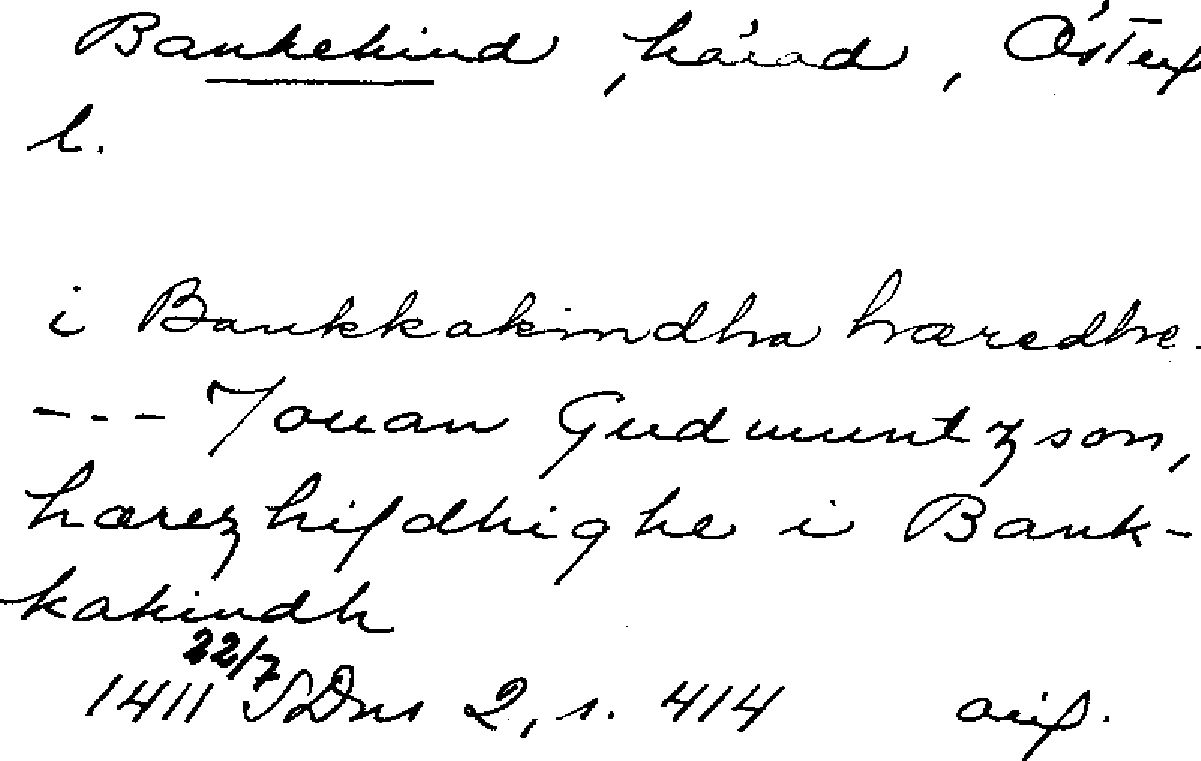 Bankekind, härad, Österg
l.
i Bankkakindha hæredhe.
--- Jouan Gudmuntzson,
hærezhifdhighe i Bank-
kakindh
1411 22/7 SDns 2, s. 414 orig.